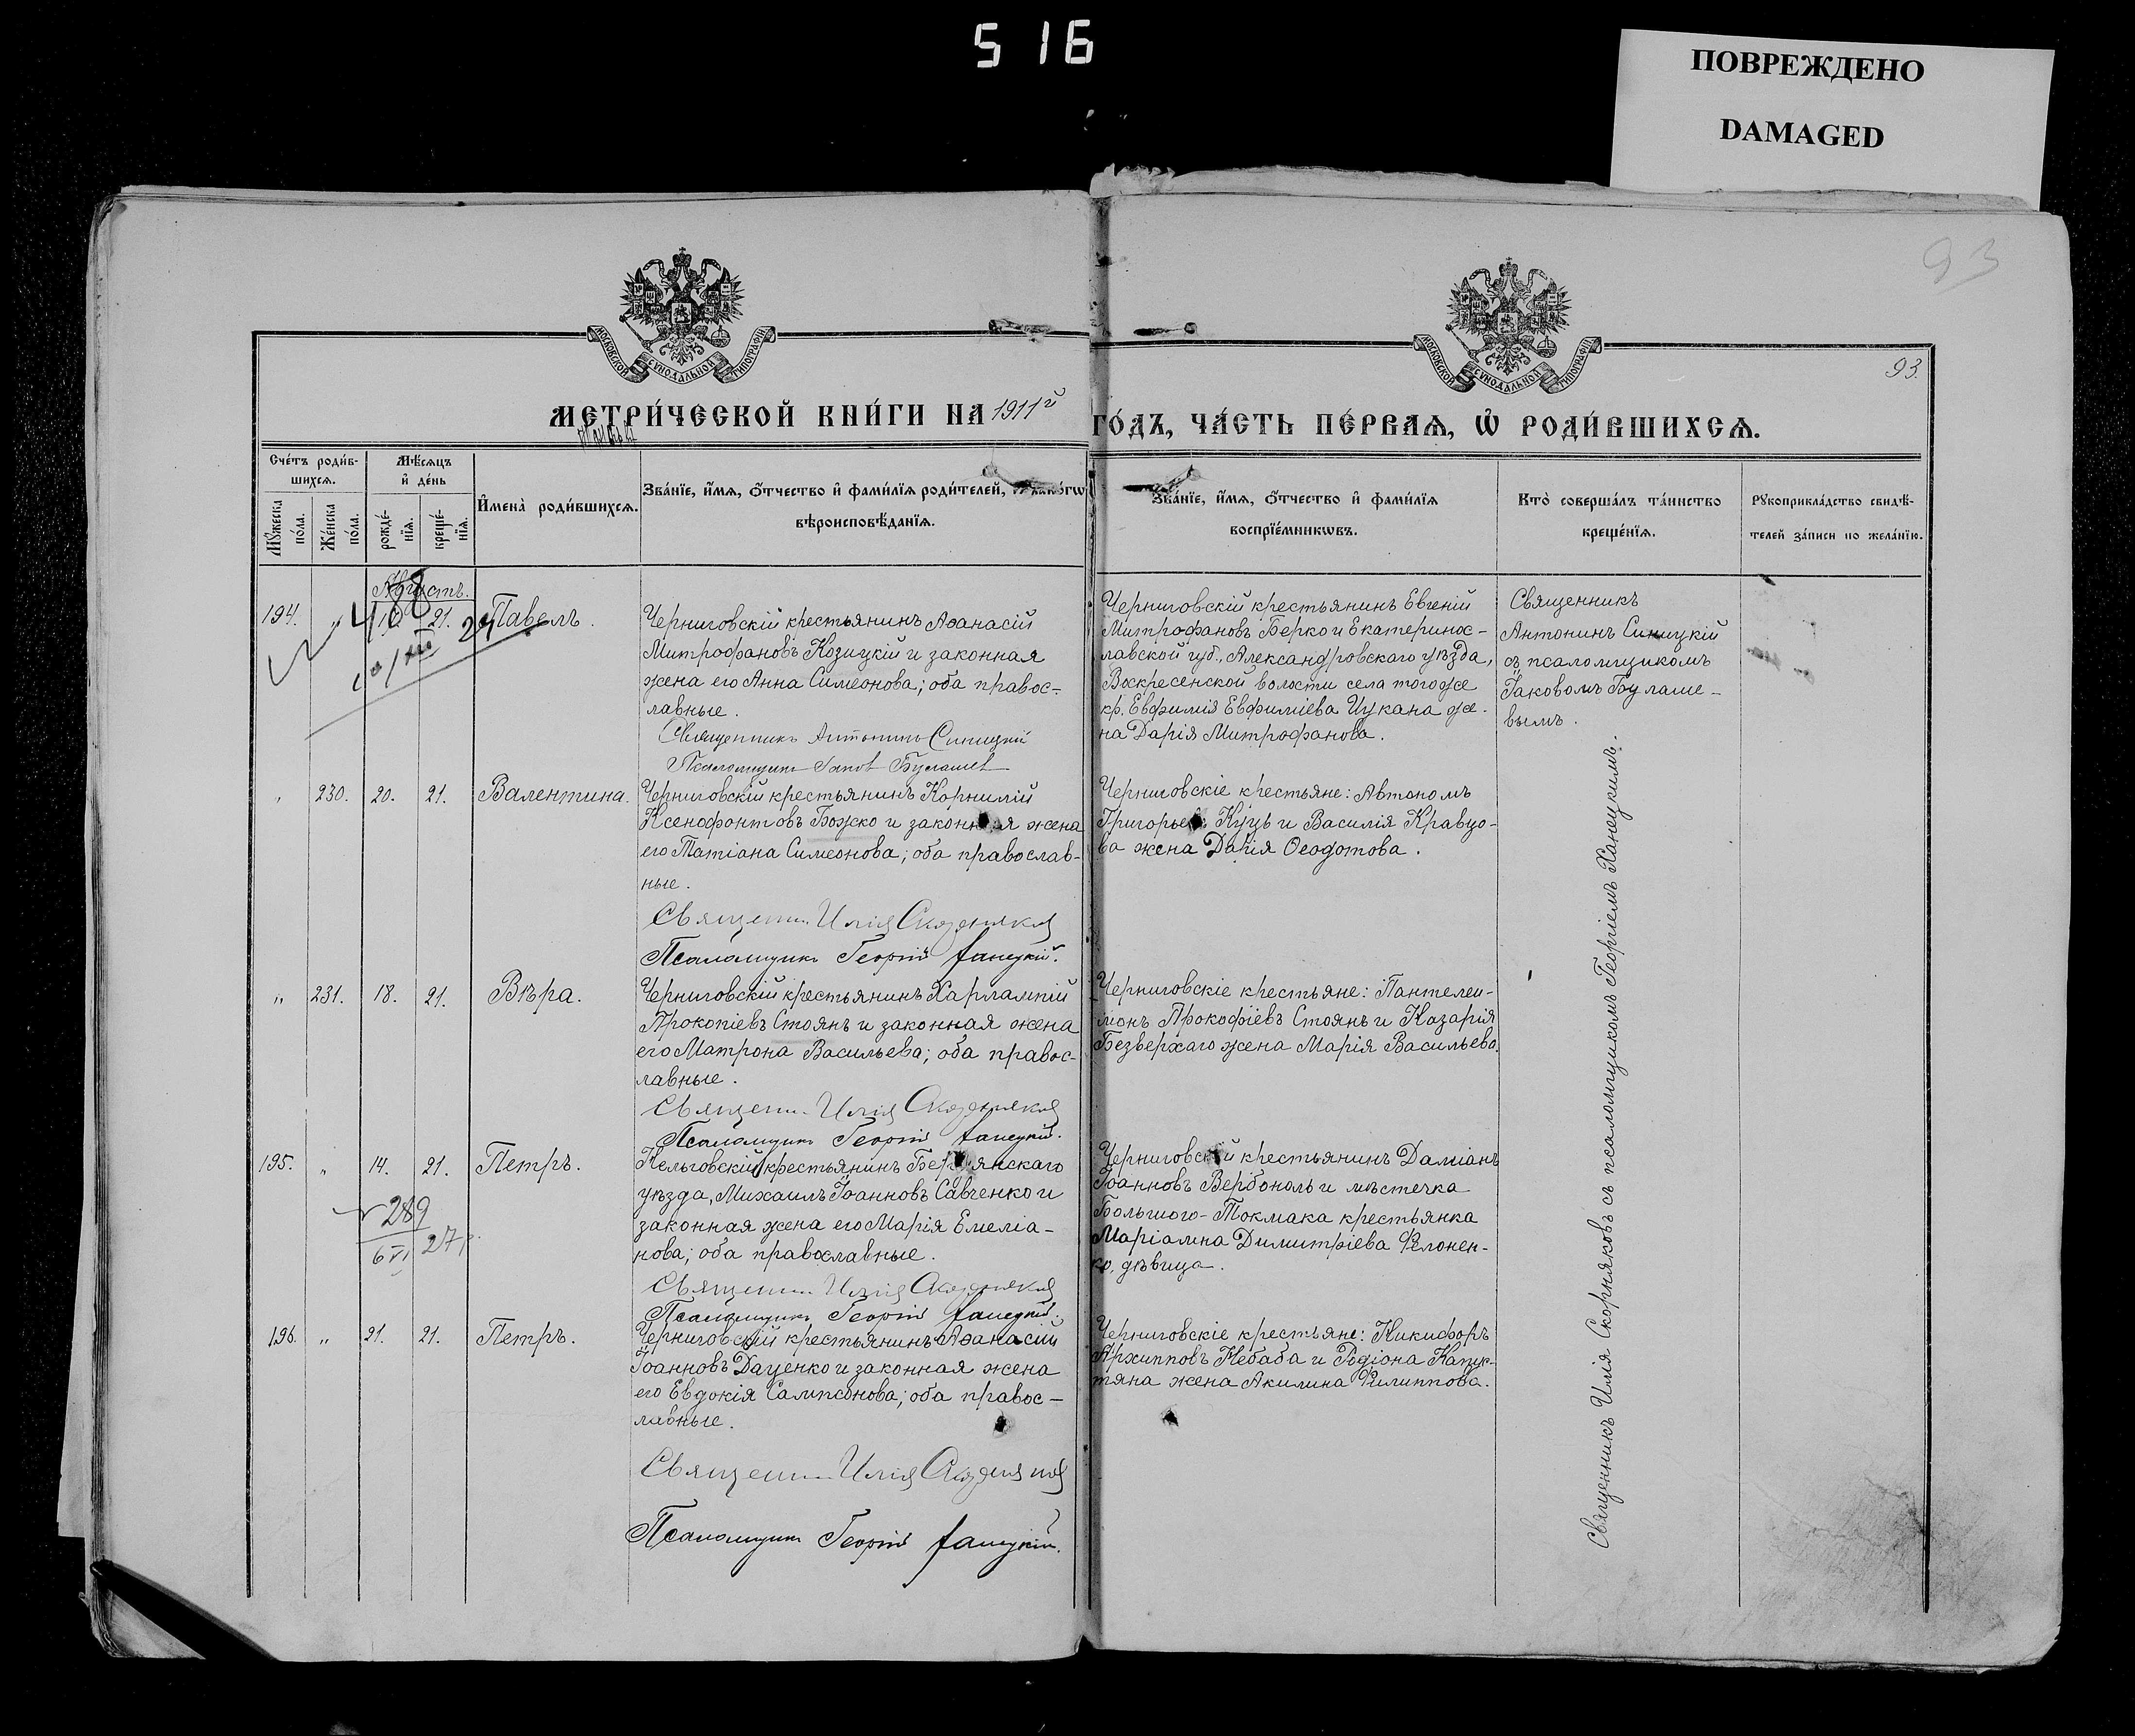 516
ПОВРЕЖДЕНО
DAMAGED
93
МОСКОВСКОЙ СѴНОДАЛЬНОЙ ТИПОГРАФІИ
МОСКОВСКОЙ СѴНОДАЛЬНОЙ ТИПОГРАФІИ
93.
МЕТРИ́ЧЕСКОЙ КНИ́ГИ НА 1911й ГО́ДЪ, ЧА́СТЬ ПЕ́РВАѦ, Ѡ҆ РОДИ́ВШИХСѦ.
Сче́тъ роди́в-
шихсѧ.
Мꙋ́жеска по́ла.
Же́нска по́ла.
Мѣ́сѧцъ
и҆ де́нь
рожде́-
нїѧ.
креще́-
нїѧ.
И҆мена̀ роди́вшихсѧ.
Зва́нїе, и҆́мѧ, ѻ҆́тчество и҆ фами́лїѧ роди́телей,
вѣроисповѣ́данїѧ.
Зва́нїе, и҆́мѧ, ѻ҆́тчество и҆ фами́лїѧ
воспрїе́мникѡвъ.
Кто̀ соверша́лъ та́инство
креще́нїѧ.
Рꙋкоприкла́дство свидѣ́-
телей за́писи по жела́нїю.
Августъ.
194. „ 21. Павелъ.
Черниговскій крестьянинъ Аѳанасій
Митрофановъ Козицкій и законная
жена его Анна Симеонова; оба правос-
лавные.
Священникъ Антонинъ Синицкій
Псаломщикъ Іаковъ Булашев
Черниговскій крестьянинъ Евгеній
Митрофановъ Берко и Екатеринос-
лавской губ., Александровскаго уѣзда,
Воскресенской волости села того же
кр. Евфимія Евфиміева Цукана же-
на Дарія Митрофанова.
Священникъ
Антонинъ Синицкій
съ псаломщикомъ
Іаковомъ Булаше-
вымъ.
„ 230. 20. 21. Валентина.
Черниговскій крестьянинъ Корнилій
Ксенофонтовъ Божко и законная жена
его Татіана Симеонова; оба православ-
ные.
Священ. Илія Скорняков
Псаломщикъ Георгій Ханецкій.
Черниговскіе крестьяне: Автономъ
Григорьевъ Куцъ и Василія Кравцо-
ва жена Дарія Ѳеодотова.
„ 231. 18. 21. Вѣра.
Черниговскій крестьянинъ Харлампій
Прокопіевъ Стоянъ и законная жена
его Матрона Васильева; оба правос-
лавные.
Священ. Илія Скорняков
Псаломщикъ Георгій Ханецкій.
Черниговскіе крестьяне: Пантелеи-
монъ Прокофіевъ Стоянъ и Назарія
Безверхаго жена Марія Васильева.
195. „ 14. 21. Петръ.
289
6 VI 27
Кельговскій крестьянинъ Бердянскаго
уѣзда, Михаилъ Іоанновъ Савченко и
законная жена его Марія Емеліа-
нова; оба православные.
Священ. Илія Скорняков
Псаломщикъ Георгій Ханецкій.
Черниговскій крестьянинъ Даміанъ
Іоанновъ Вербоноль и мѣстечка
Большого-Токмака крестьянка
Маріамна Димитріева Филонен-
ко, дѣвица.
196. „ 21. 21. Петръ.
Черниговскій крестьянинъ Аѳанасій
Іоанновъ Даценко и законная жена
его Евдокія Сампсонова; оба правос-
лавные.
Священ. Илія Скорняков
Псаломщикъ Георгій Ханецкій.
Черниговскіе крестьяне: Никифоръ
Архипповъ Небаба и Родіона Капук-
тяна жена Акилина Филиппова.
Священникъ Илія Скорняковъ съ псаломщикомъ Георгіемъ Ханецкимъ.